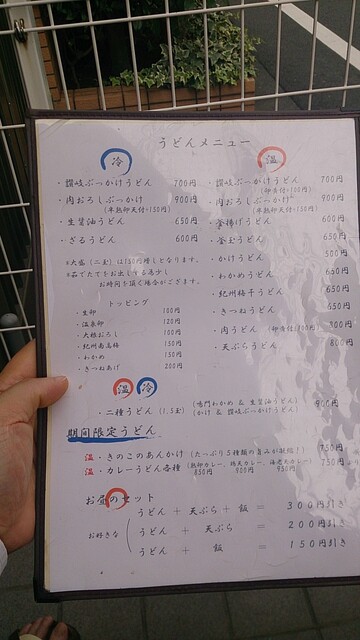 うどんメニュー
冷
・讃岐ぶっかけうどん 700円
・肉おろしぶっかけ 900円
(半熟卵天付+150円)
・生醤油うどん 650円
・ざるうどん 600円
※大盛(二玉)は150円増しとなります。
※茹でたてをお出しする為少し
お時間を頂く場合がございます。
トッピング
・生卵 100円
・温泉卵 120円
・大根おろし 100円
・紀州南高梅 150円
・わかめ 150円
・きつねあげ 200円
温
・讃岐ぶっかけうどん 700円
・肉おろしぶっかけ 900円
(半熟卵天付+150円)
・釜揚げうどん 600円
・釜玉うどん 650円
・かけうどん 500円
・わかめうどん 650円
・紀州梅干うどん 650円
・きつねうどん
・肉うどん
・天ぷらうどん 800円
温 冷
・二種うどん (1.5玉) (鳴門わかめ & 生醤油うどん) 900円
(かけ & 讃岐ぶっかけうどん)
期間限定うどん
温・きのこのあんかけ (たっぷり5種類の旨みが凝縮!) 750円
温・カレーうどん各種 750円
850円 900円 950円
お昼のセット
お好きな
うどん + 天ぷら + 飯 = 300円引き
うどん + 天ぷら = 200円引き
うどん + 飯 = 150円引き